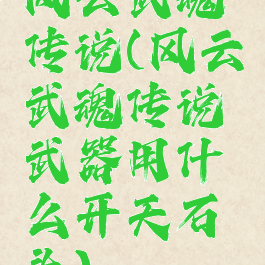 风云武魂
传说(风云
武魂传说
武器用什
么开天石
)